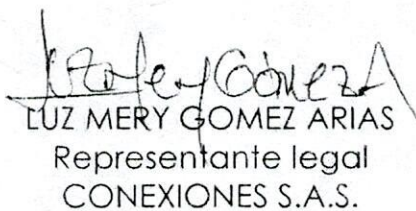 LUZ MERY GOMEZ ARIAS
Representante legal
CONEXIONES S.A.S.